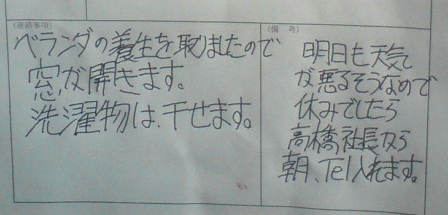 (連絡事項)
ベランダの養生を取りましたので
窓が開きます。
洗濯物は、干せます。
(備 考)
明日も天気
が悪るそうなので
休みでしたら
高橋社長から
朝、Tel入れます。